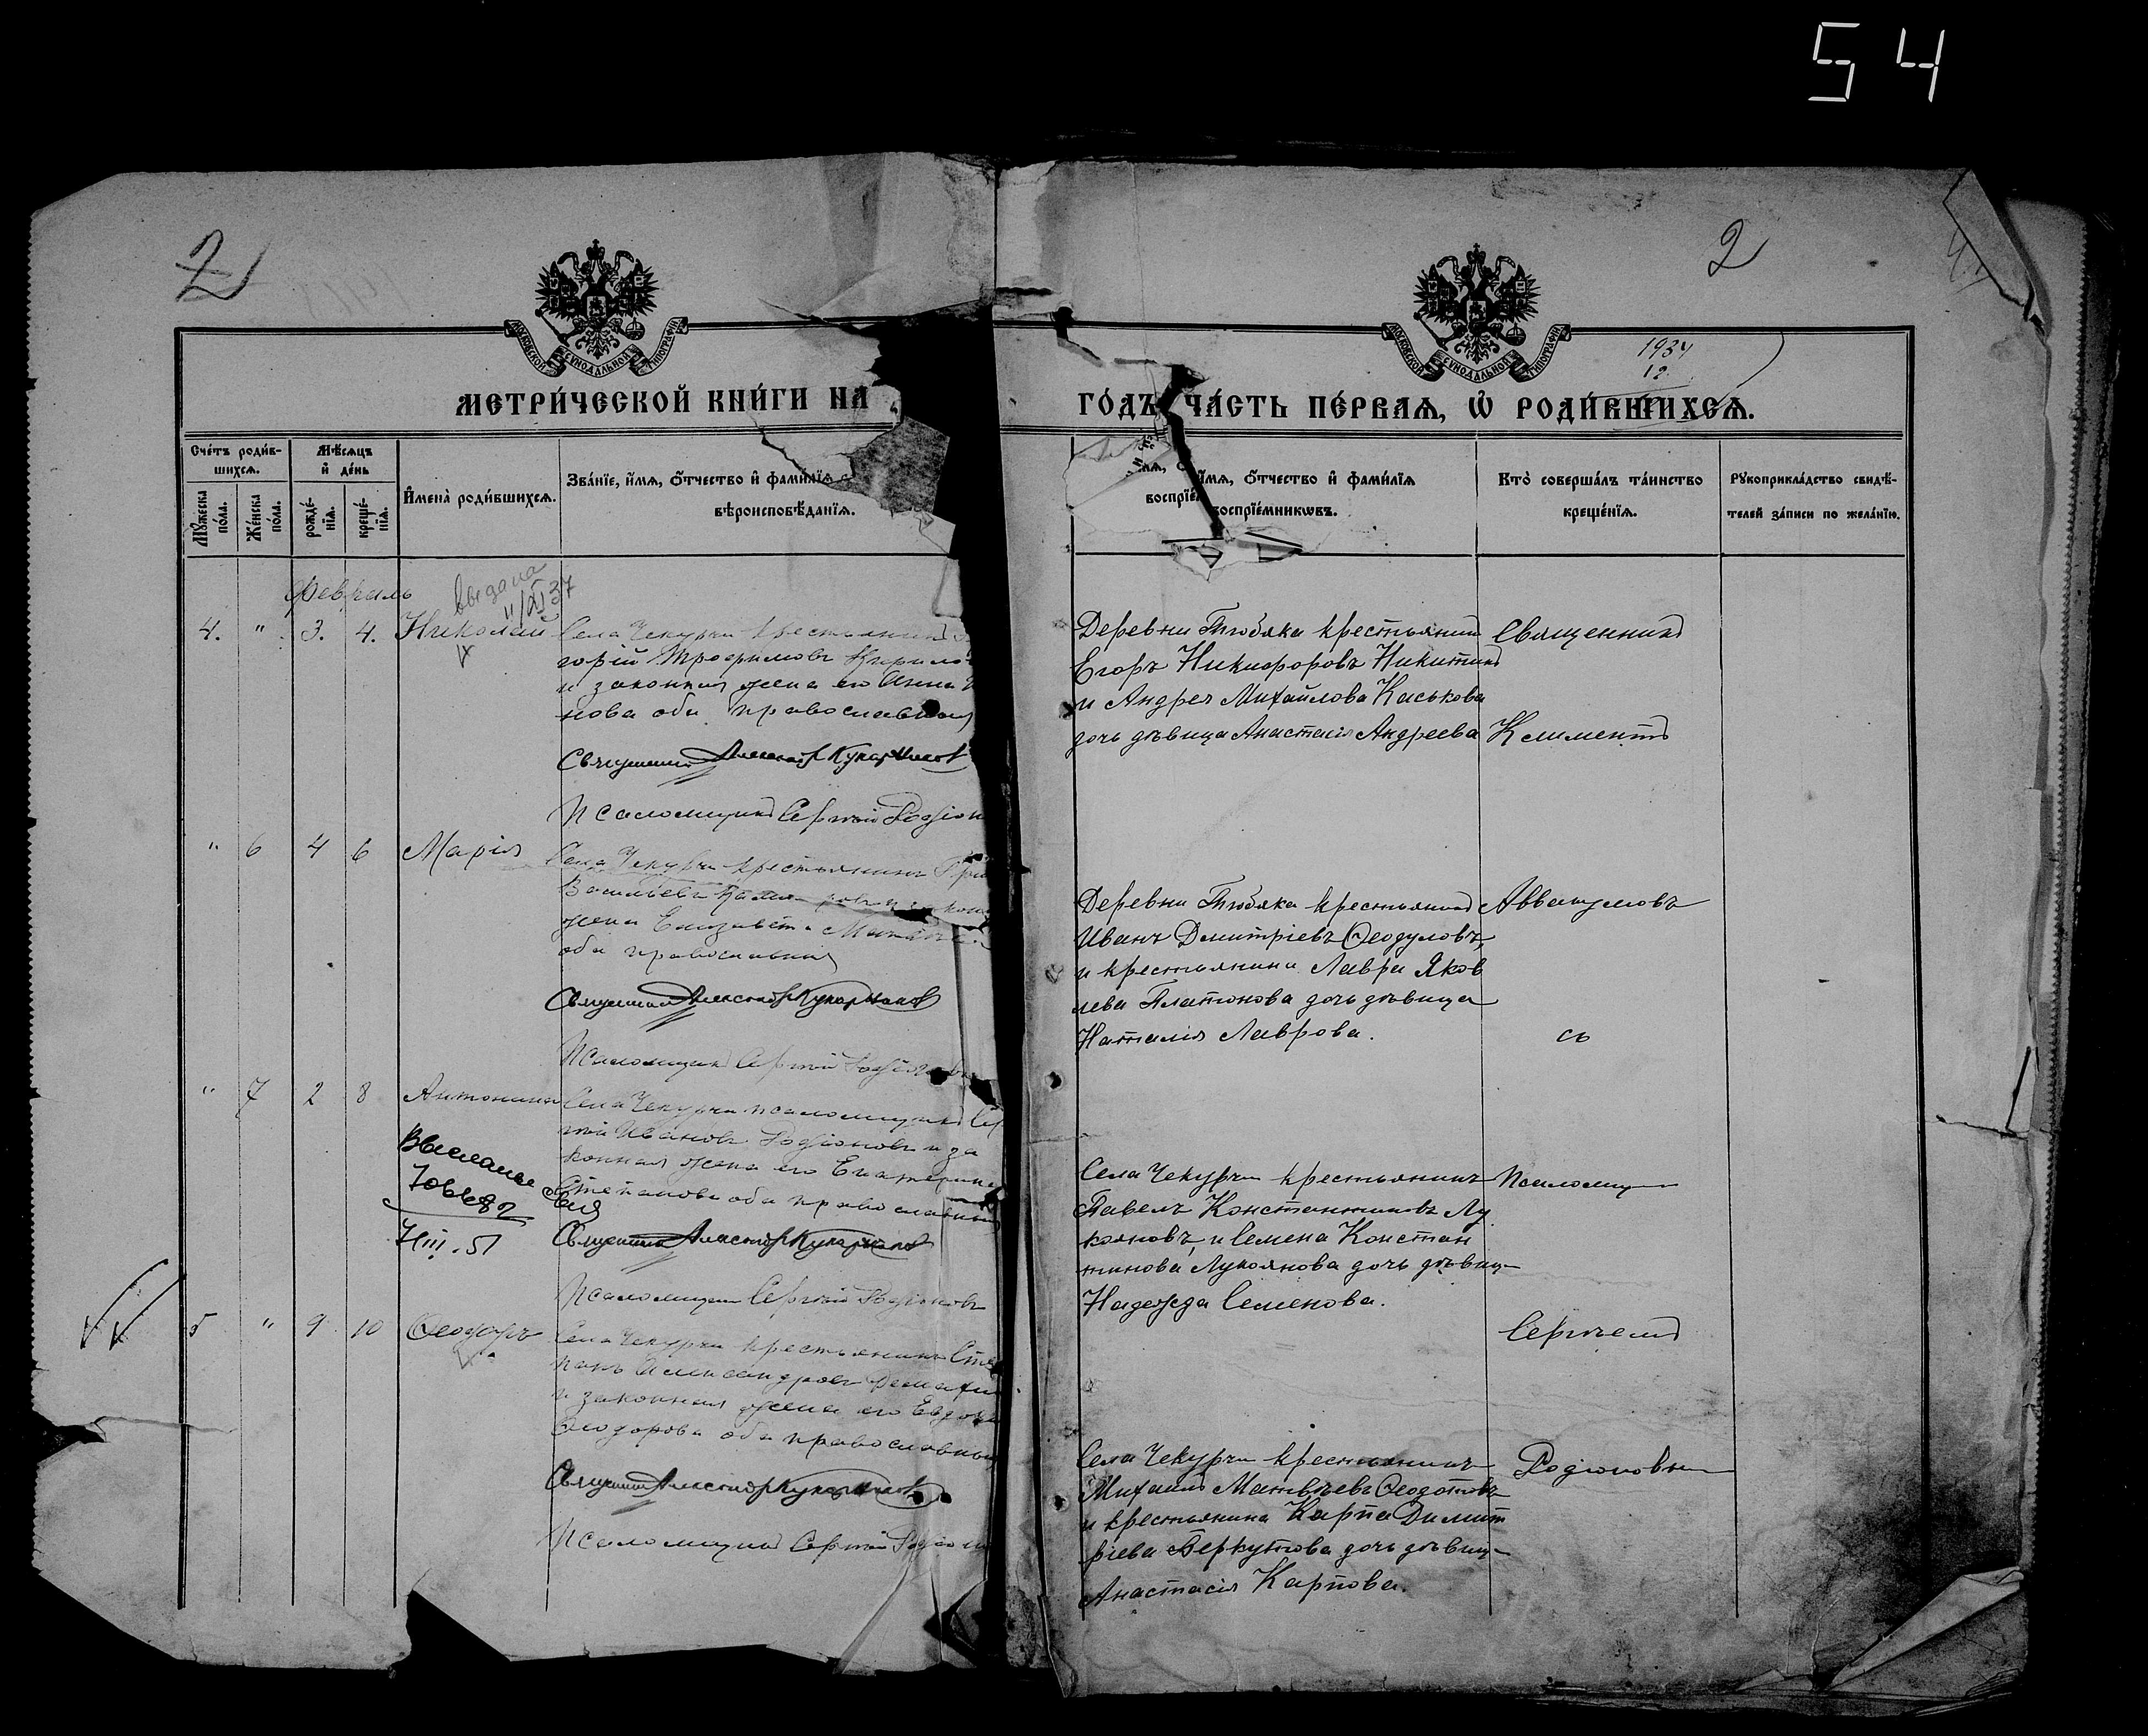 54
2
2
МОСКОВСКОЙ СѴНОДАЛЬНОЙ ТИПОГРАФІИ
МОСКОВСКОЙ СѴНОДАЛЬНОЙ ТИПОГРАФІИ
1934
12
МЕТРИ́ЧЕСКОЙ КНИ́ГИ НА
ГО́ДЪ ЧА́СТЬ ПЕ́РВАЯ, Ѡ РОДИ́ВШИХСЯ.
Сче́тъ роди́в-
шихся.
Мѣ́сяцъ
и҆ де́нь
Мꙋ́жеска
по́ла.
Же́нска
по́ла.
рожде́-
нїя.
креще́-
нїя.
И҆мена̀ роди́вшихся.
Зва́нїе, и҆́мя, ѻ҆́тчество и҆ фами́лїя
вѣроисповѣ́данїя.
И҆́мя, ѻ҆́тчество и҆ фами́лїя
воспрїе́мникѡвъ.
Кто̀ соверша́лъ та́инство
креще́нїя.
Рꙋкоприкла́дство свидѣ́-
телей за́писи по жела́нїю.
Февраль
выдана
11/XI 37
4. " 3. 4. Николай
Села Чекурчи крестьянинъ
горій Трофимовъ Кирило
и законная жена его Анна
нова оба православныя
Священникъ Александръ Кукарниковъ
Псаломщикъ Сергѣй Родіон
Деревни Тюбяка крестьянинъ
Егоръ Никифоровъ Никитинъ
и Андрея Михайлова Каськова
дочь дѣвица Анастасія Андреева
Священникъ
Климентъ
" 6 4 6 Марія
Села Чекурчи крестьянинъ Гри
Васильевъ
жена Елизавета
оба православныя
Священникъ Александръ Кукарниковъ
Псаломщикъ Сергѣй Родіонов
Деревни Тюбяка крестьянинъ
Иванъ Дмитріевъ Ѳеодуловъ,
и крестьянина Лавра Яков
лева Платонова дочь дѣвица
Наталія Лаврова.
Аввакумовъ
съ
" 7 2 8 Антонина
Села Чекурчи псаломщикъ Сер
гѣй Ивановъ Родіоновъ и за
конная жена его Екатерина
Степанова оба православныя
Священникъ Александръ Кукарниковъ
Псаломщикъ Сергѣй Родіоновъ
7/III.51
Села Чекурчи крестьянинъ
Павелъ Константиновъ Лу
кояновъ, и Семена Констан
тинова Лукоянова дочь дѣвица
Надежда Семенова.
Псаломщи
Сергѣемъ
5 " 9 10 Ѳеодоръ
Села Чекурчи крестьянинъ Сте
панъ Александровъ
и законная жена его Евдок
Ѳеодорова оба православныя
Священникъ Александръ Кукарниковъ
Псаломщикъ Сергѣй Родіон
Села Чекурчи крестьянинъ
Михаилъ Матвѣевъ Ѳеодотовъ
и крестьянина Карпа Димит
ріева Беркутова дочь дѣвица
Анастасія Карпова.
Родіоновым